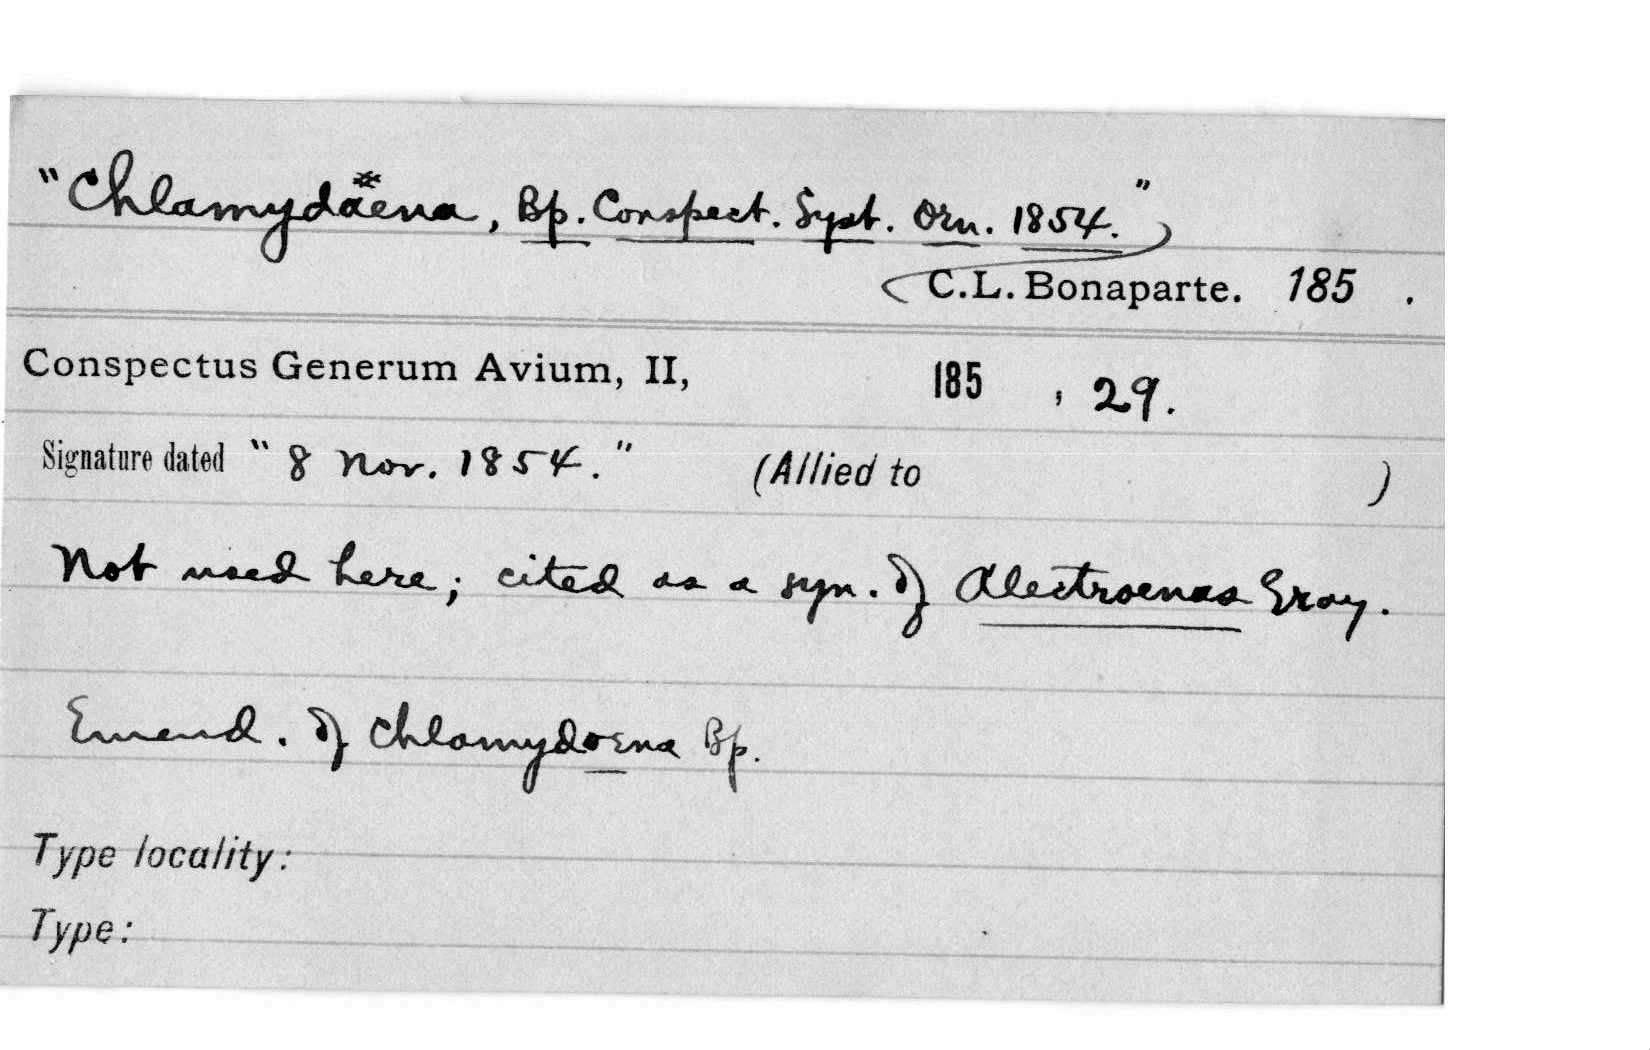 "Chlamydäena, Bp. Conspect. Syst. Orn. 1854."
C.L. Bonaparte. 185 .
Conspectus Generum Avium, II, 185 , 29.
Signature dated "8 Nov. 1854." (Allied to )
Not used here; cited as a syn. of Alectroenas Gray.
Emend. of Chlamydoena Bp.
Type locality:
Type: